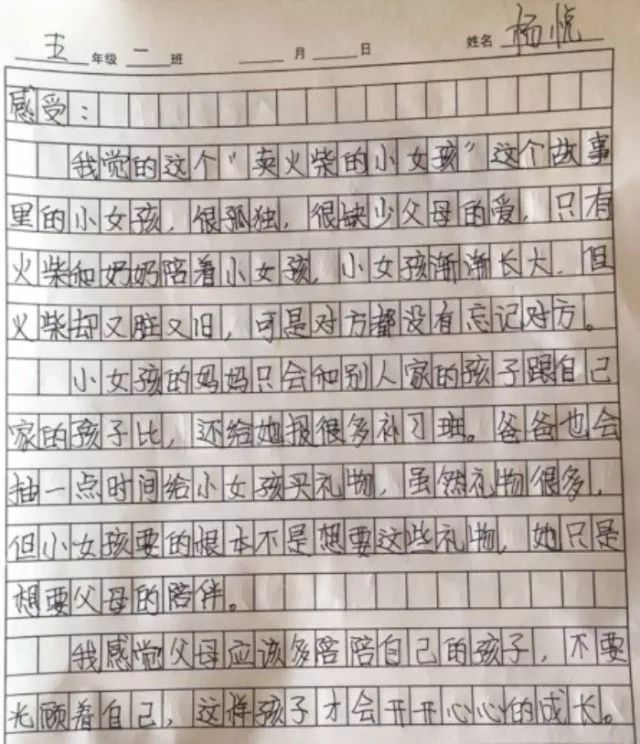 五年级二班 月 日 姓名 杨悦
感受：
我觉的这个“卖火柴的小女孩”这个故事
里的小女孩，很孤独，很缺少父母的爱，只有
火柴和奶奶陪着小女孩，小女孩渐渐长大，但
火柴却又脏又旧，可是对方都没有忘记对方。
小女孩的妈妈只会和别人家的孩子跟自己
家的孩子比，还给她报很多补习班。爸爸也会
抽一点时间给小女孩买礼物，虽然礼物很多，
但小女孩要的根本不是想要这些礼物，她只是
想要父母的陪伴。
我感觉父母应该多陪陪自己的孩子，不要
光顾着自己，这样孩子才会开开心心的成长。